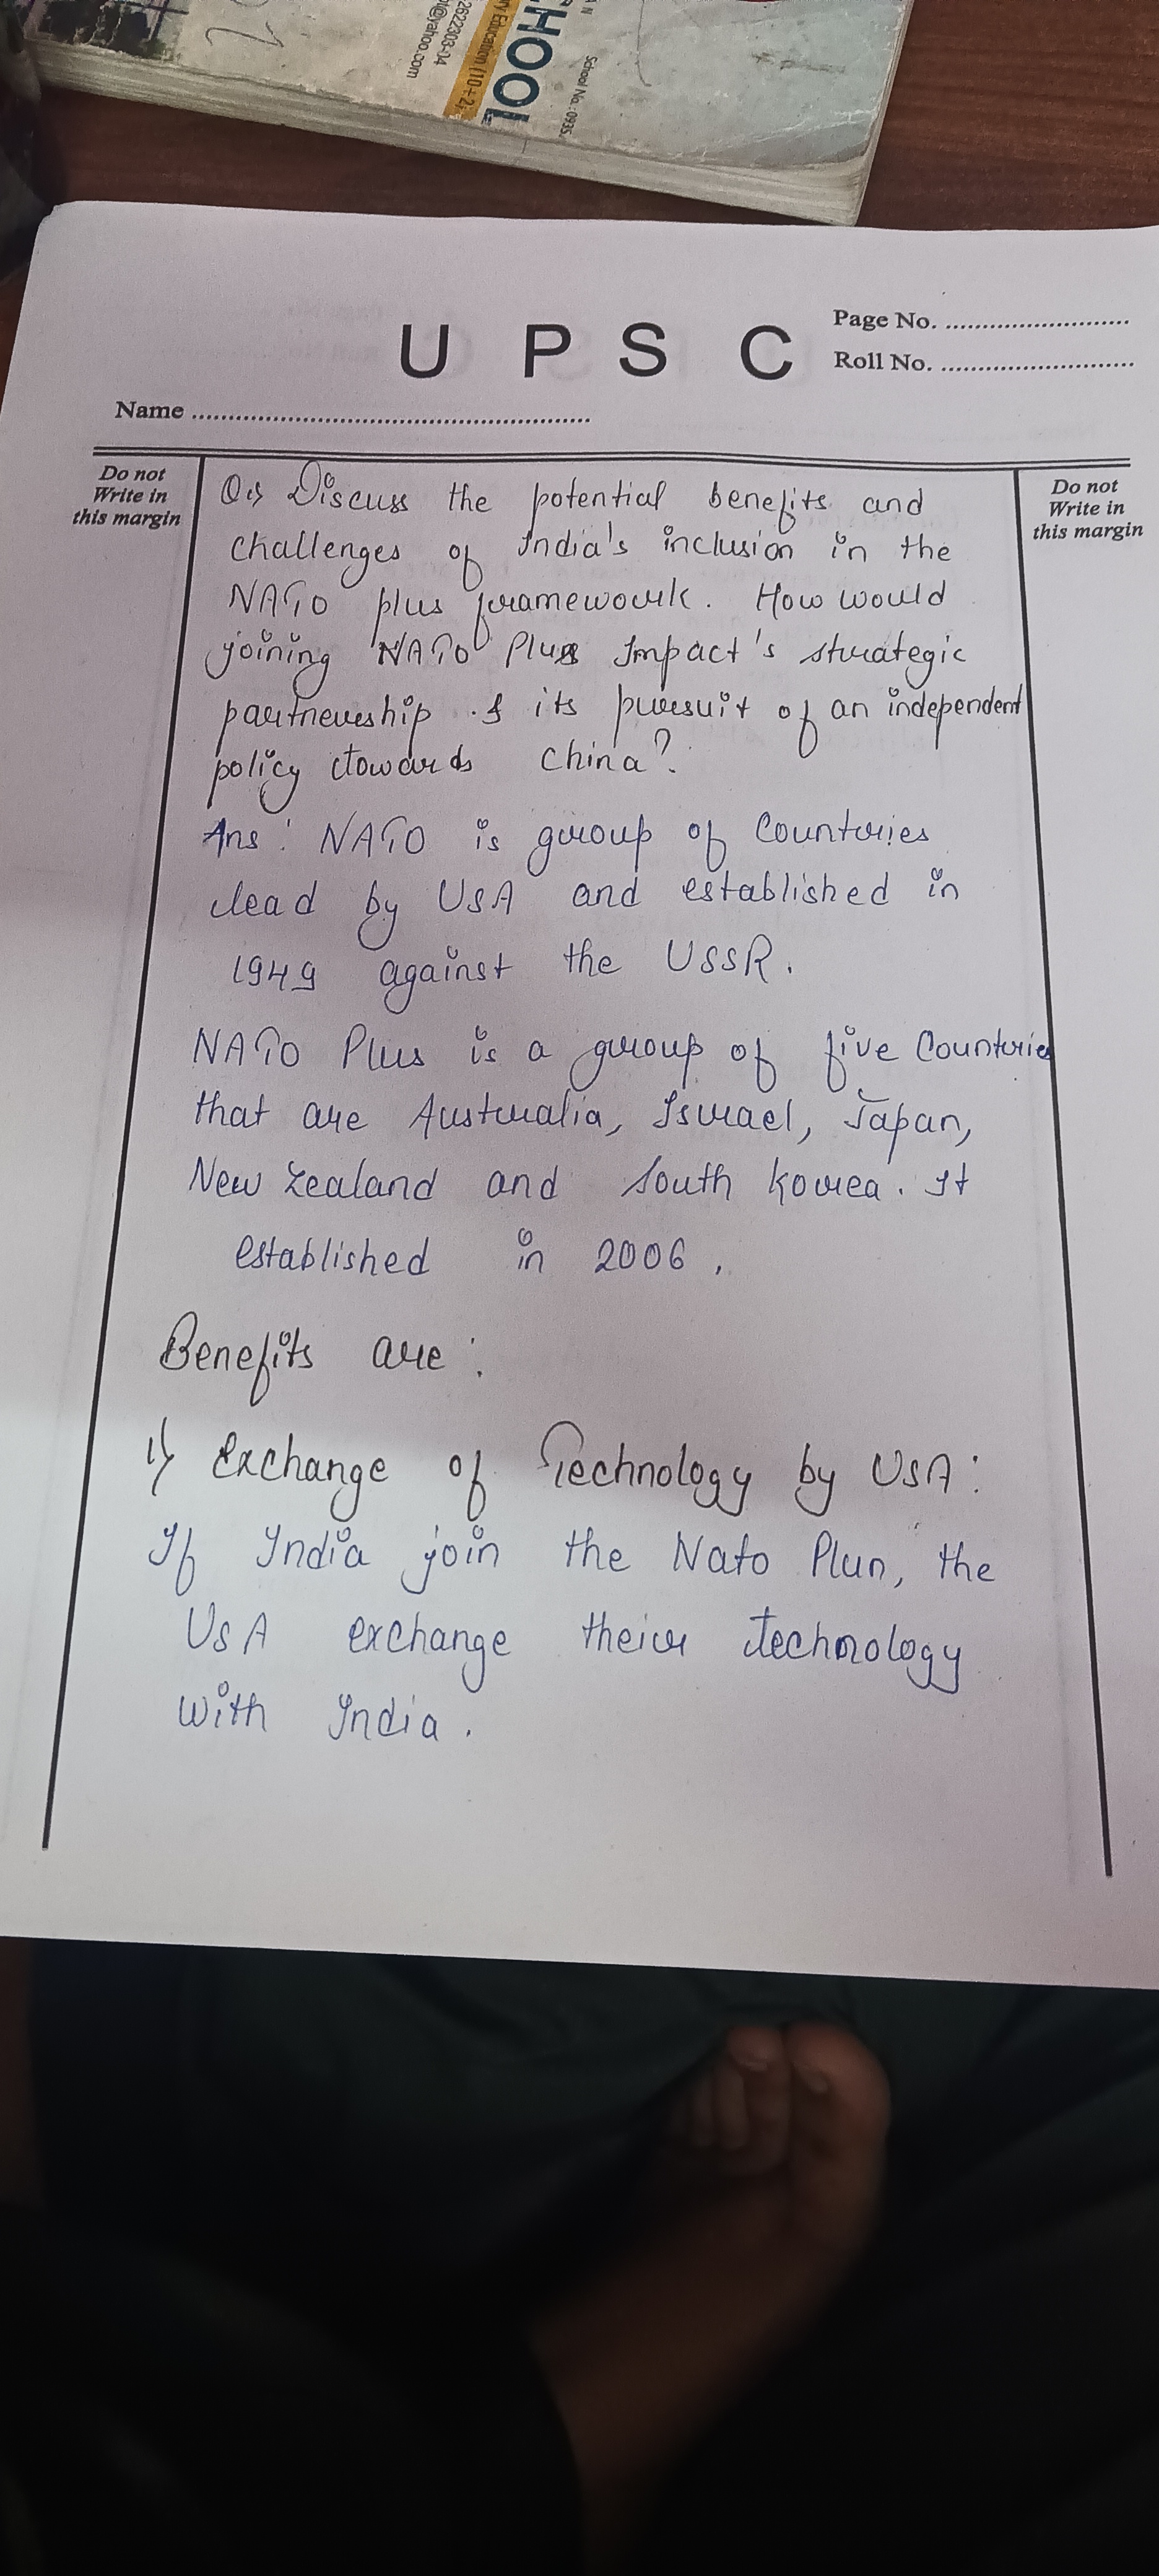 2622303-04
@yahoo.com
ry Education (10+2)
CHOOL
School No.: 0935
U P S C
Page No.
Roll No.
Name
Do not
Write in
this margin
Do not
Write in
this margin
Q1) Discuss the potential benefits and
challenges of India's inclusion in the
NATO plus framework. How would
joining NATO Plus Impact's strategic
partnership & its pursuit of an independent
policy towards China?
Ans: NATO is group of Countries
lead by USA and established in
1949 against the USSR.
NATO Plus is a group of five Countries
that are Australia, Israel, Japan,
New Zealand and South Korea. It
established in 2006.
Benefits are:
1) Exchange of Technology by USA:
If India join the Nato Plun, the
USA exchange their technology
with India.